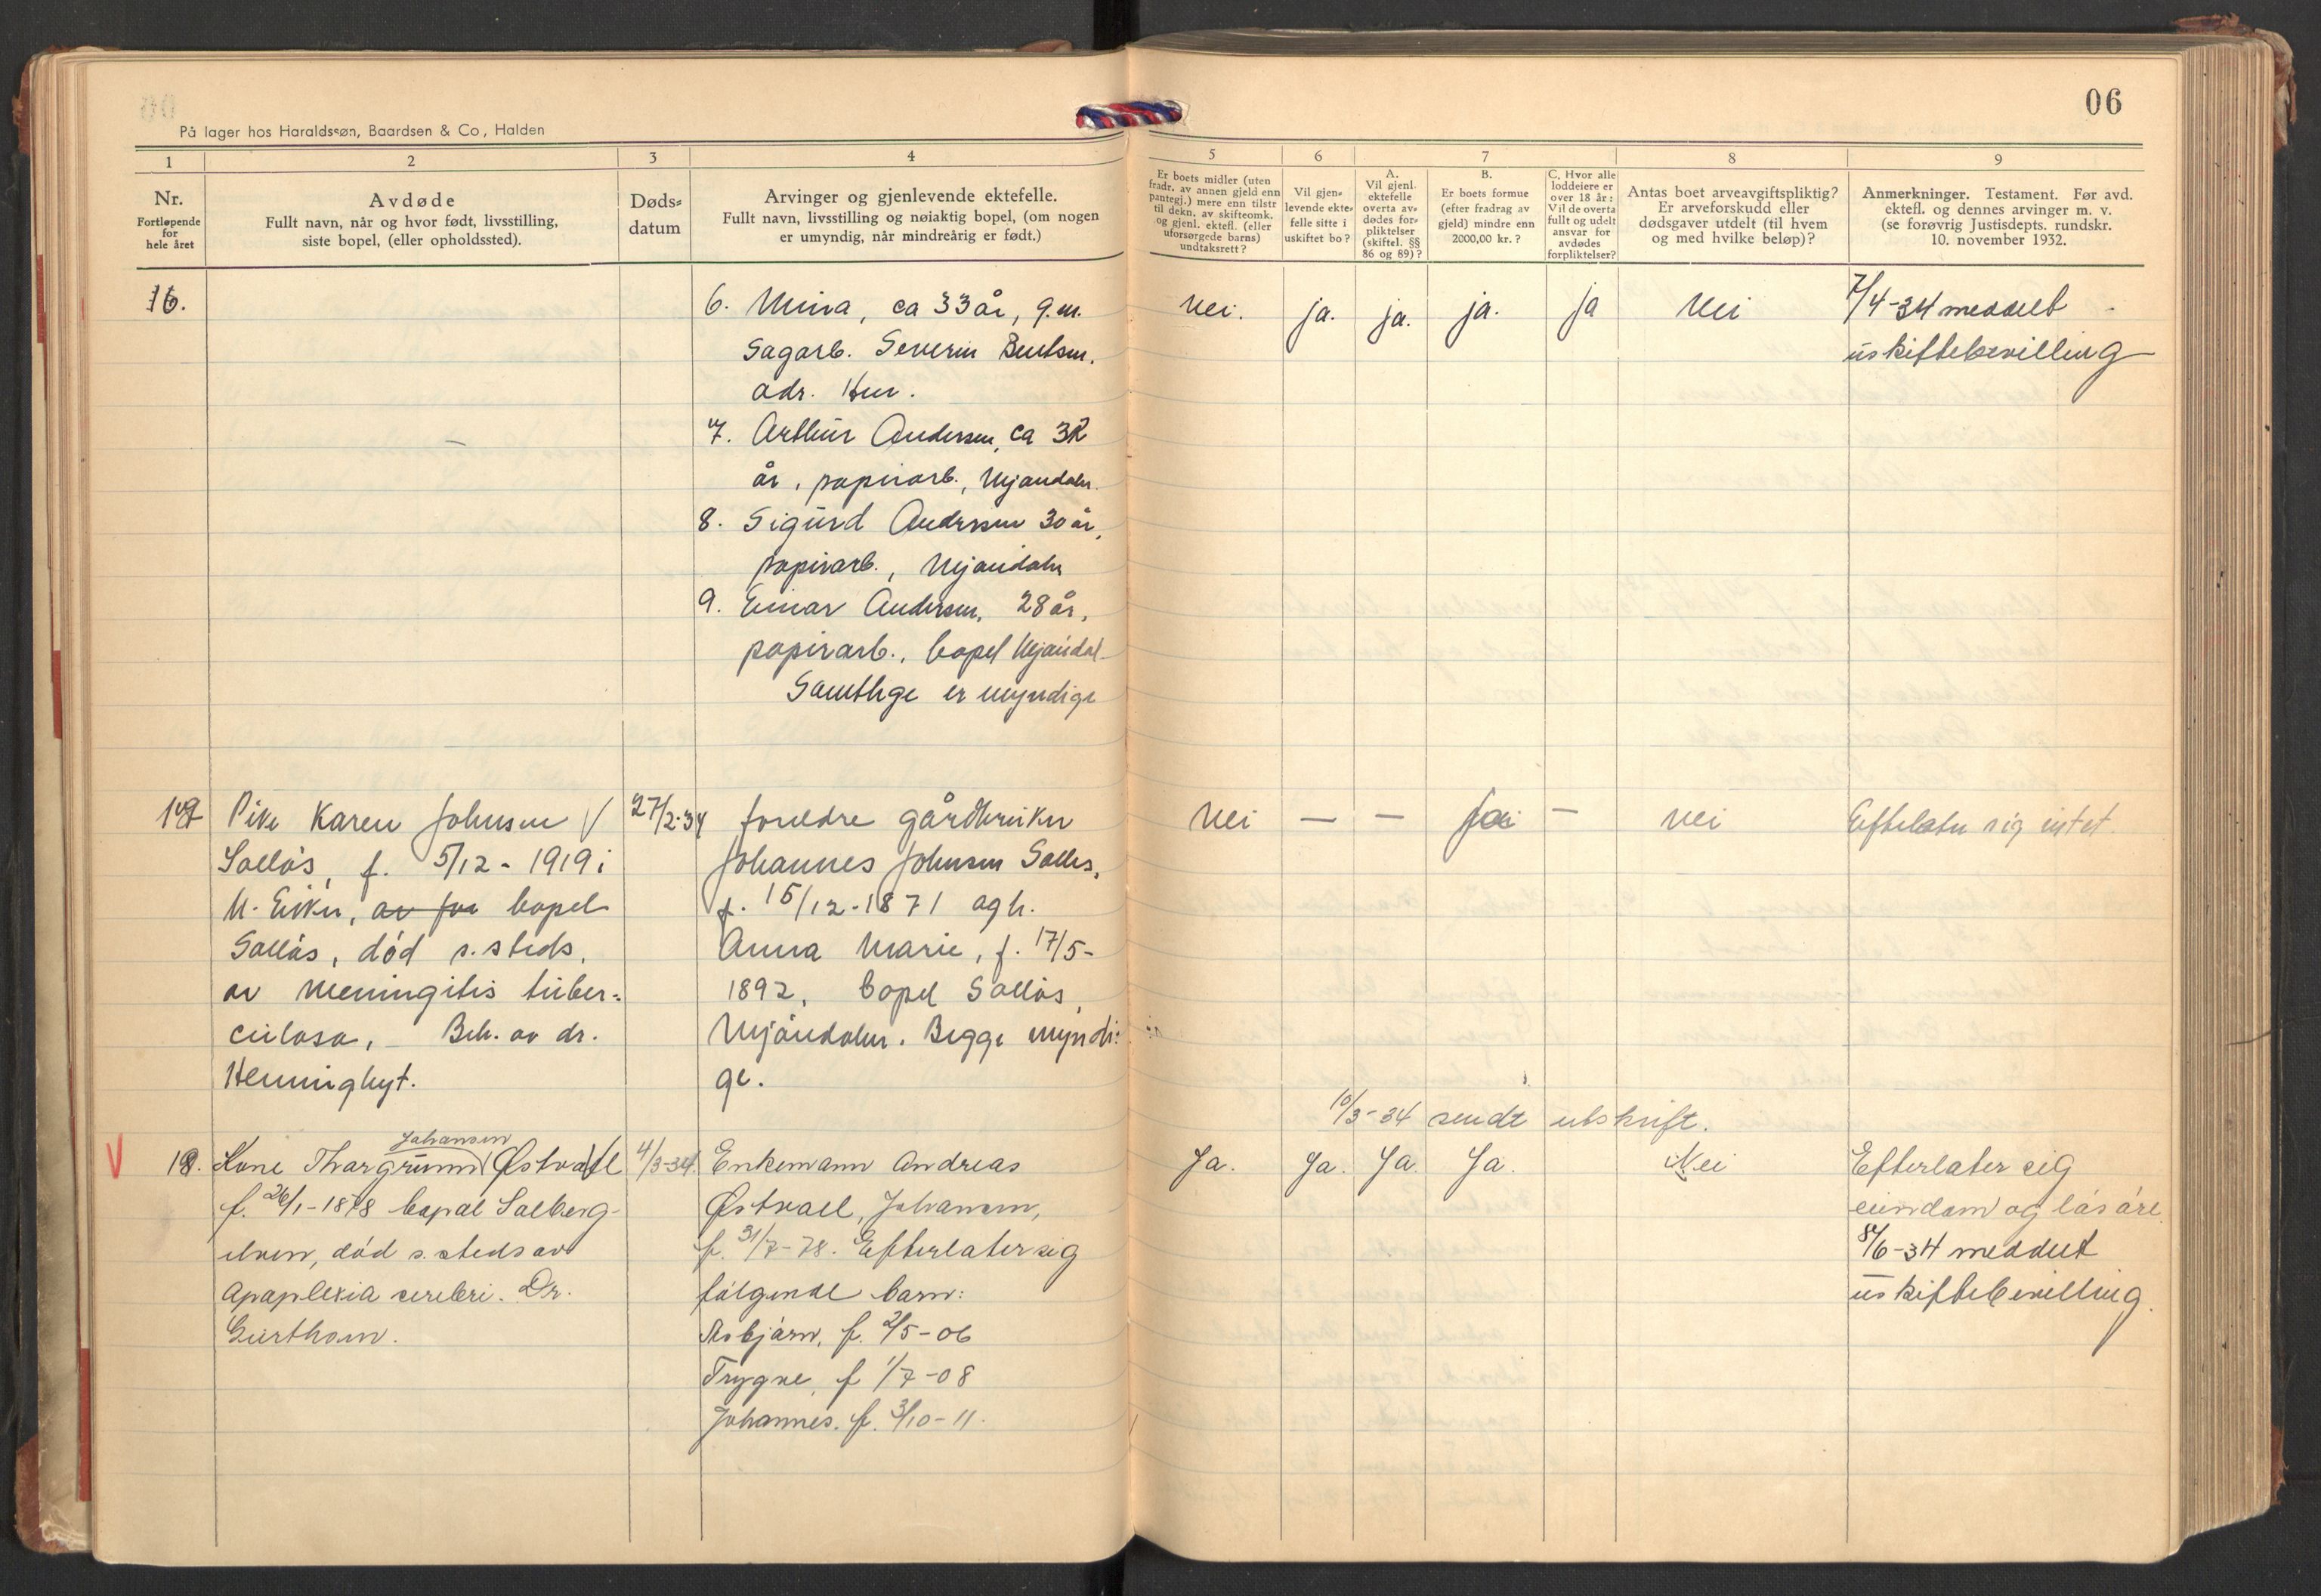 06
På lager hos Haraldssøn, Baardsen & Co, Halden
1 2 3 4 5 6 7 8 9
Nr.
Fortløpende
for
hele året
Avdøde
Fullt navn, når og hvor født, livsstilling,
siste bopel, (eller opholdssted).
Døds-
datum
Arvinger og gjenlevende ektefelle.
Fullt navn, livsstilling og nøiaktig bopel, (om nogen
er umyndig, når mindreårig er født.)
Er boets midler (uten
fradr. av annen gjeld enn
pantegj.) mere enn tilstr
til dekn. av skifteomk.
og gjenl. ektefl. (eller
uforsørgede barns)
undtaksrett?
Vil gjen-
levende ekte-
felle sitte i
uskiftet bo?
A.
Vil gjenl.
ektefelle
overta av-
dødes for-
pliktelser
(skiftel. §§
86 og 89)?
B.
Er boets formue
(efter fradrag av
gjeld) mindre enn
2000,00 kr.?
C. Hvor alle
loddeiere er
over 18 år:
Vil de overta
fullt og udelt
ansvar for
avdødes
forpliktelser?
Antas boet arveavgiftspliktig?
Er arveforskudd eller
dødsgaver utdelt (til hvem
og med hvilke beløp)?
Anmerkninger. Testament. Før avd.
ektefl. og dennes arvinger m. v.
(se forøvrig Justisdepts. rundskr.
10. november 1932.
16.
6. Mina, ca 33 år, g.m.
Sagarb. Severin Bentsen.
adr. Hur.
7. Arthur Andersen, ca 32
år, papirarb., Mjøndalen.
8. Sigurd Andersen 30 år,
papirarb., Mjøndalen
9. Einar Andersen, 28 år,
papirarb., bopel Mjøndal-
Samtlige er myndige
nei. ja. ja. ja. ja nei
7/4-34 meddelt
uskiftebevilling
17
Pike Karen Johnsen
Solløs, f. 5/12-1919 i
N. Eiker, av for bopel
Solløs, død s.steds,
av meningitis tuber-
culosa, Beh. av dr.
27/2-34
foreldre gårdbruker
Johannes Johnsen Solløs,
f. 15/12-1871 og h.
Anna Marie, f. 17/5-
1892, bopel Solløs,
Mjøndalen. Begge myndi-
ge.
Nei — — Ja — nei
Efterlater sig intet.
10/3-34 sendt utskrift.
V
18.
Johansen
Kone Thorgrunn Østvoll
f. 26/1-1878 bopæl Solberg-
elven, død s.steds av
Apoplexia cerebri. Dr.
4/3-34.
Enkemann Andreas
Østvoll, Johansen,
f. 31/7-78. Efterlater sig
følgende barn:
Asbjørn, f. 2/5-06
Trygve, f 1/7-08
Johannes. f. 3/10-11.
Ja. Ja. Ja. Ja. Nei
Efterlater sig
eiendom og løsøre.
8/6-34 meddelt
uskiftebevilling.